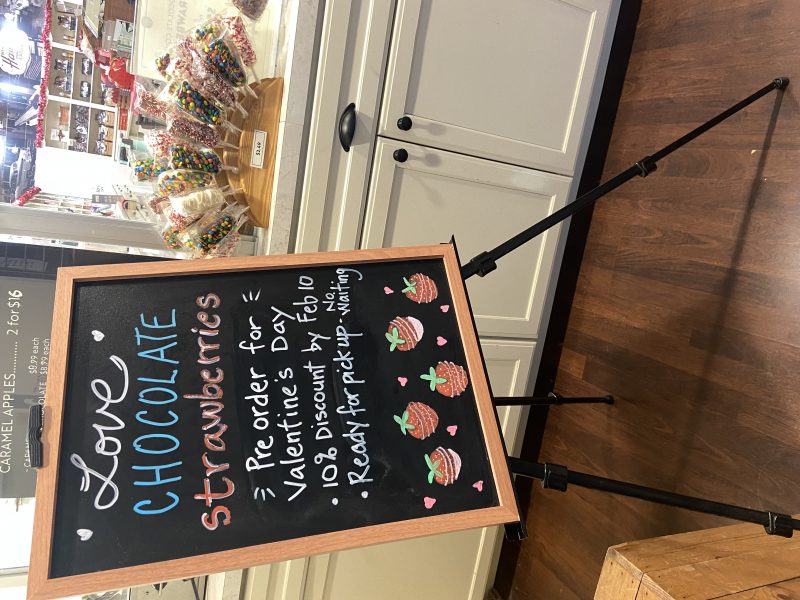 Love
CHOCOLATE
strawberries
Pre order for
Valentine's Day
• 10% Discount by Feb 10
• Ready for pick up - No Waiting
CARAMEL APPLES........... 2 for $16
$8.99 each
$8.99 each
$2.49